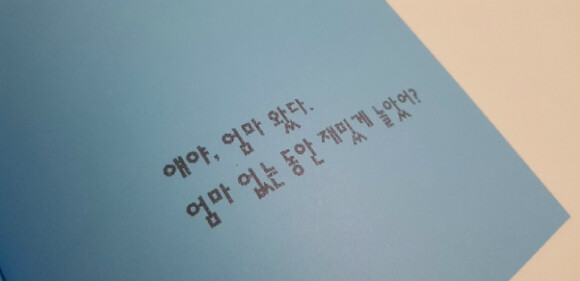 얘야, 엄마 왔다.
엄마 없는 동안 재밌게 놀았어?